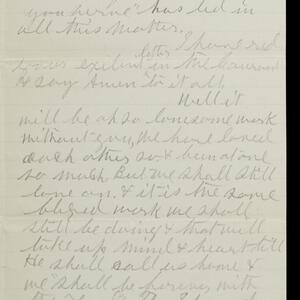 you permé" has led in
all this matter.
I have red
your exelent letter in the
& say Amen to it all.
Will it
will be ah so lonesome work
without you, We have loved
each other so & been at one
so much But we shall still
love on. & it is the same
blessed work we shall
still be doing & that will
take up mind & heart till
He shall call us home &
we shall be forever with